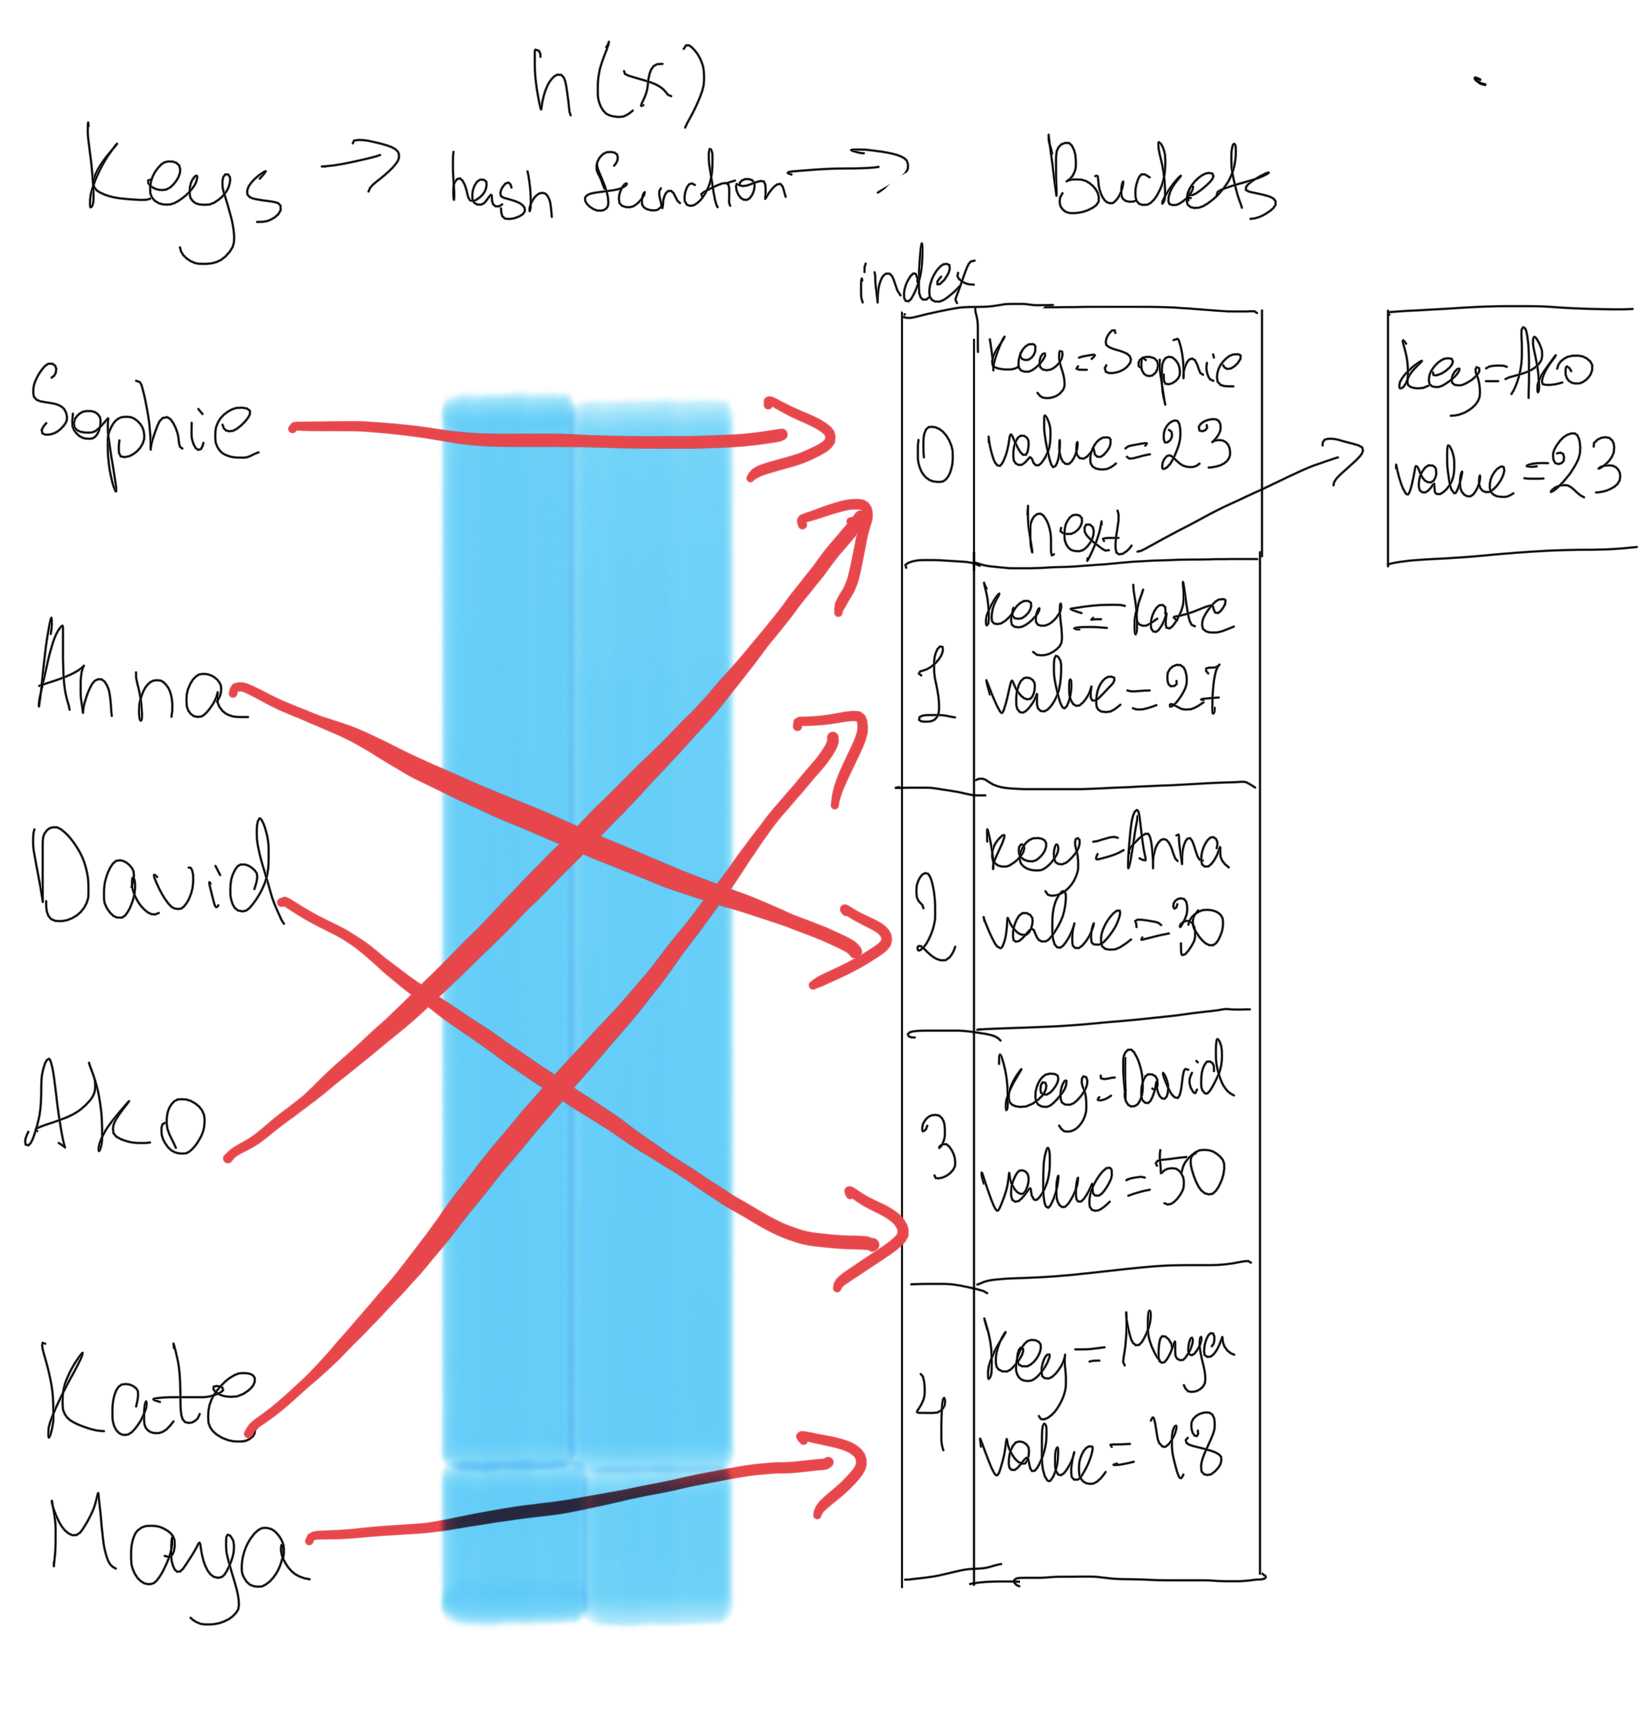 h(x)
Keys → hash function → Buckets
index
Sophie
Anna
David
Ako
Kate
Maya
0
key=Sophie
value=23
next
key=Ako
value=23
1
key=Kate
value=27
2
key=Anna
value=30
3
key=David
value=50
4
key=Maya
value=48